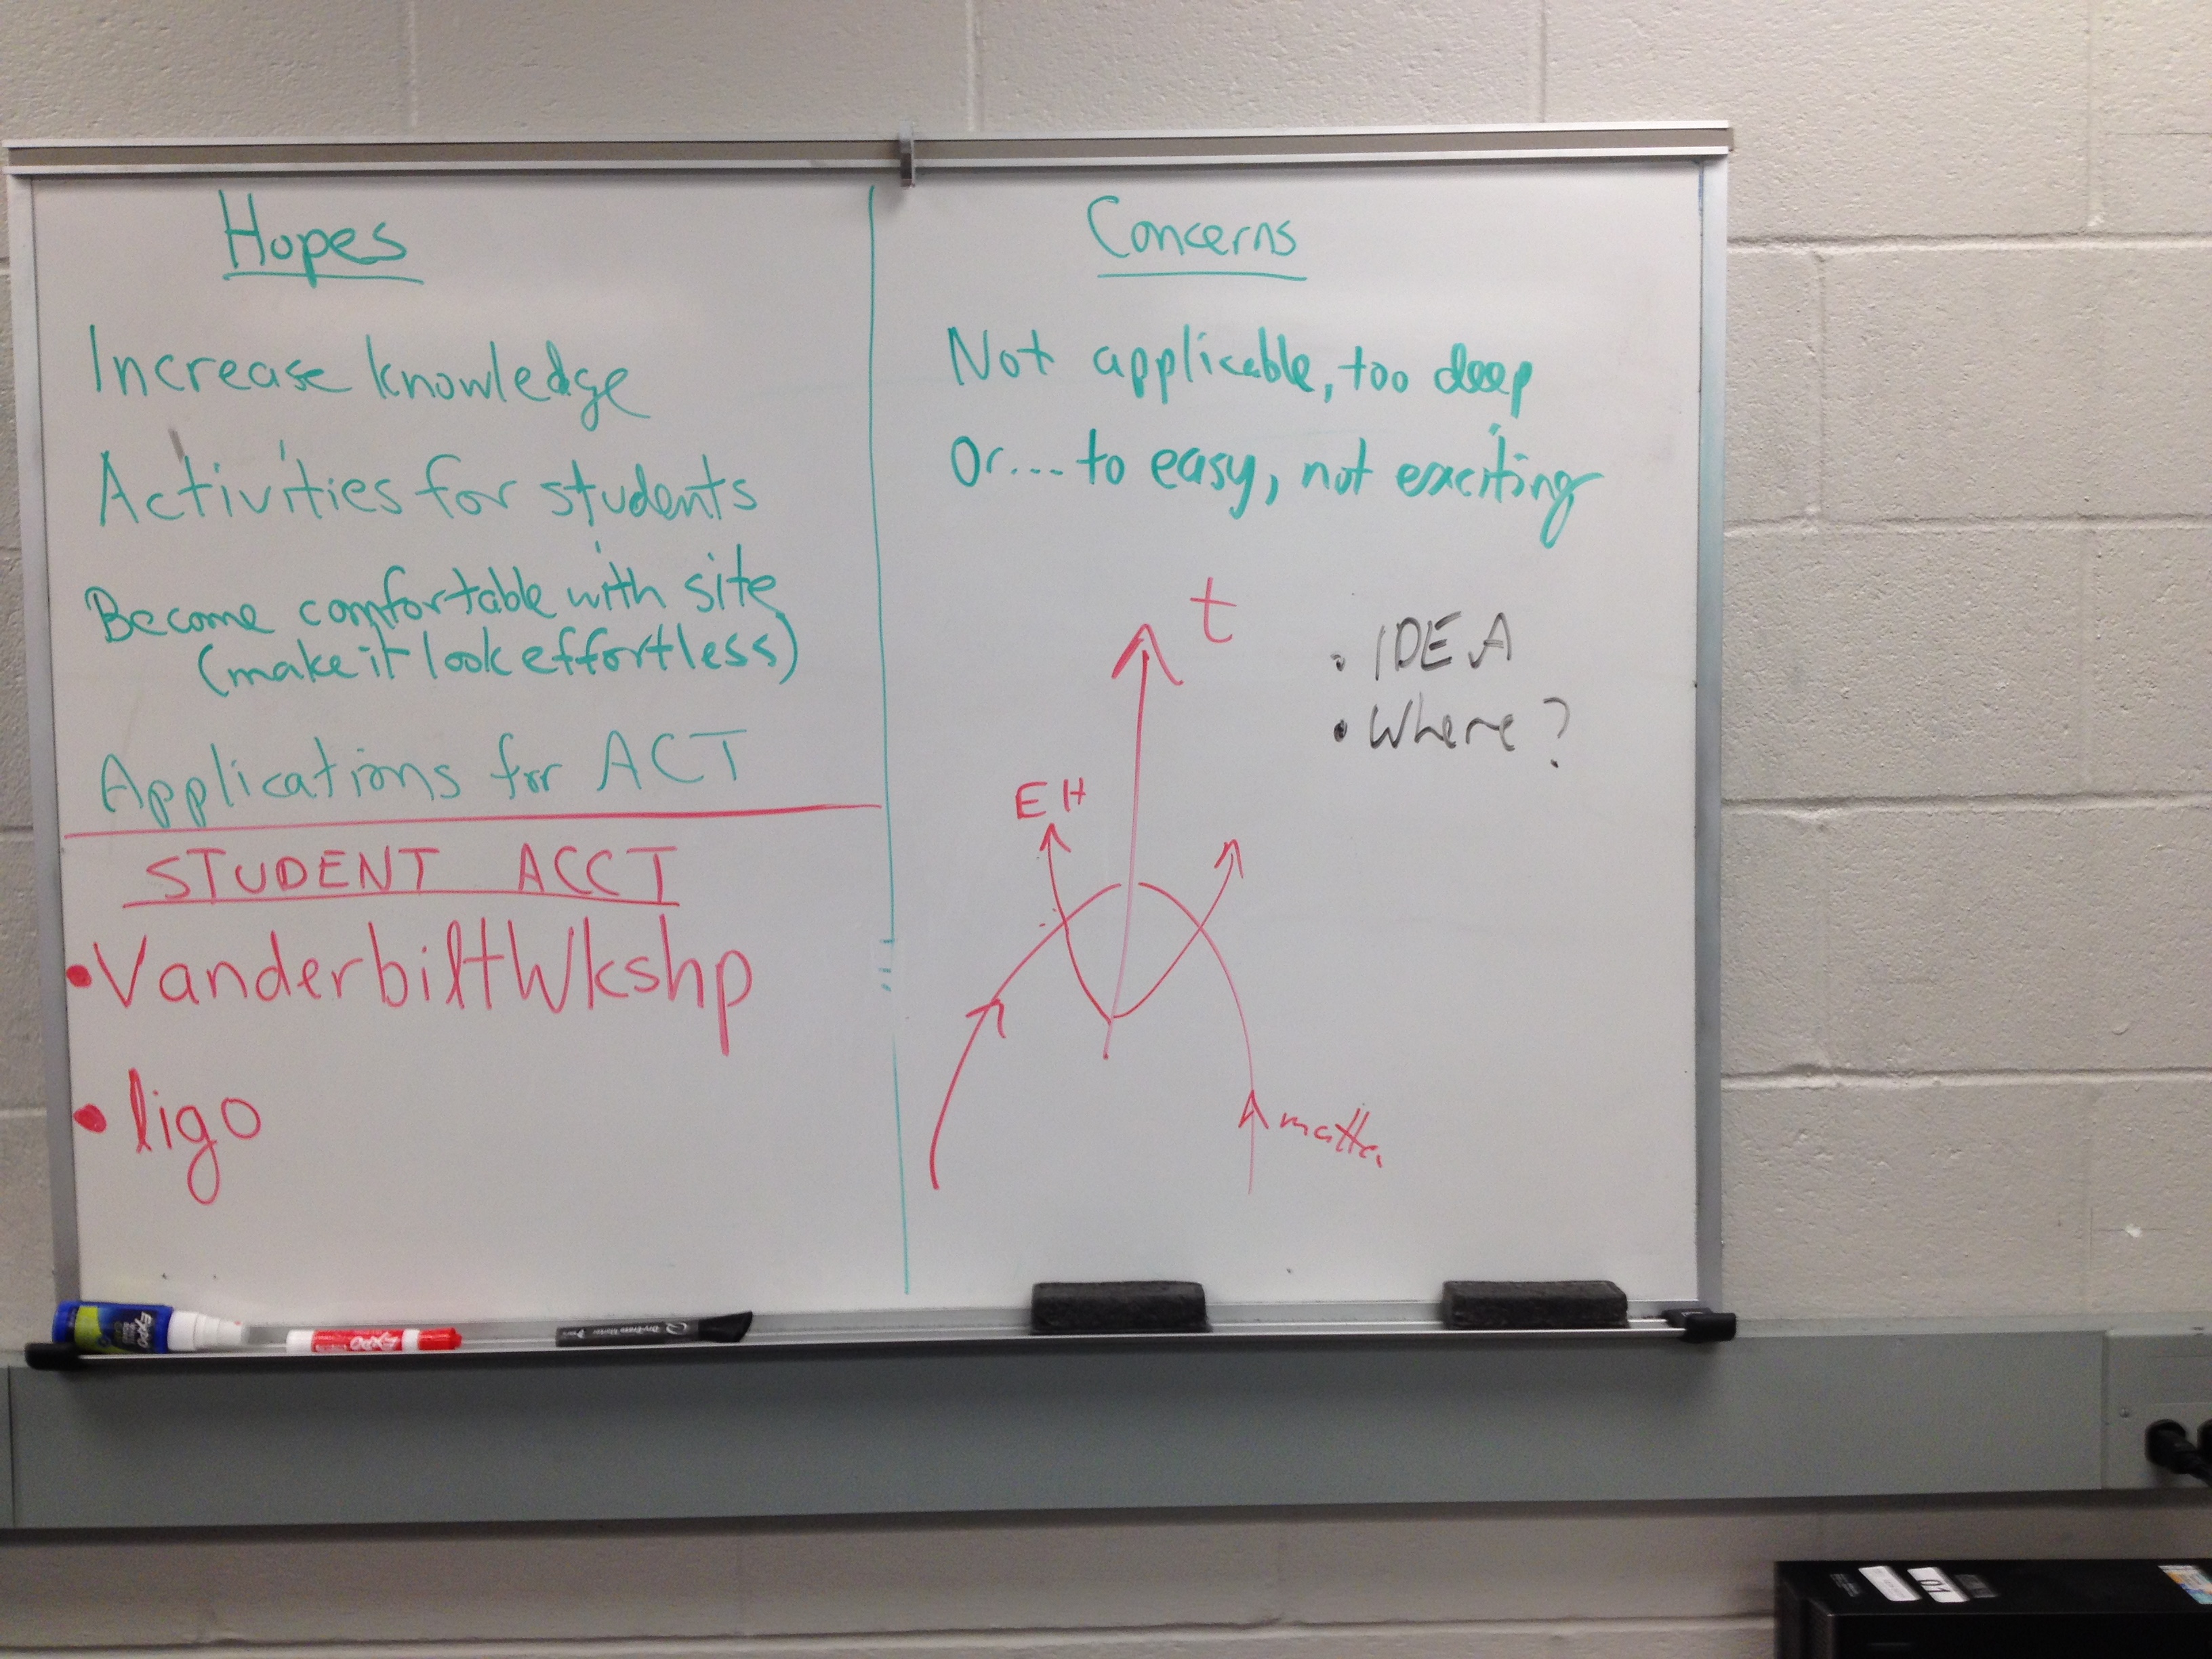 Hopes
Increase knowledge
Activities for students
Become comfortable with site
(make it look effortless)
Applications for ACT
STUDENT ACCT
• VanderbiltWkshp
• ligo
Concerns
Not applicable, too deep
Or.... to easy, not exciting
t
• IDEA
• Where?
EH
matter
EXPO
EXPO
Dry-Erase Marker
01